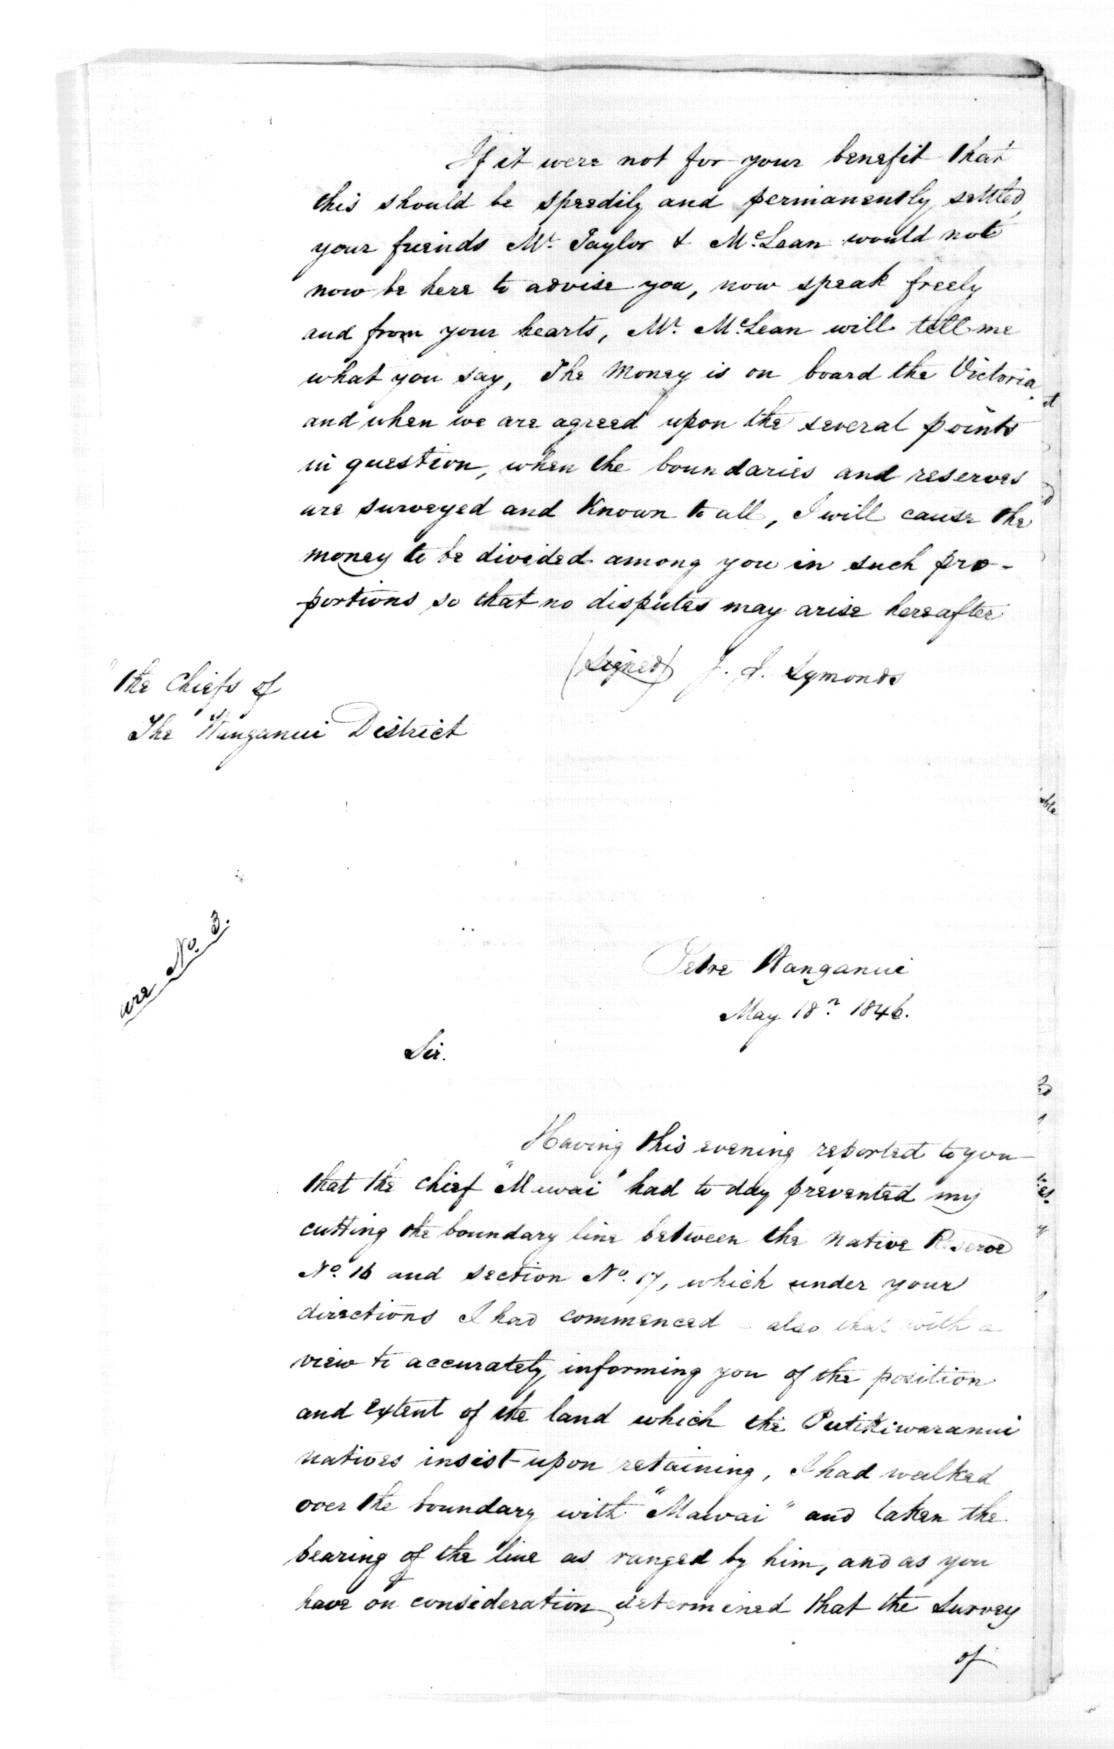 If it were not for your benefit that
this should be speedily and permanently settled,
your friends Mr. Taylor & McLean would not
now be here to advise you, now speak freely
and from your hearts, Mr. McLean will tell me
what you say, The Money is on board the Victoria,
and when we are agreed upon the several points
in question, when the boundaries and reserves
are surveyed and Known to all, I will cause the
money to be divided among you in such pro-
portions so that no disputes may arise hereafter
(Signed) J. J. Symonds
The Chiefs of
The Wanganui District
ure No. 3.
Petre Wanganui
May 18th 1846.
Sir.
Having this evening reported to you
that the chief "Mawai" had to day prevented my
cutting the boundary line between the native Reserve
No. 16 and section No. 17, which under your
directions I had commenced - also that with a
view to accurately informing you of the position
and extent of the land which the Putikiwaranui
natives insist upon retaining, I had walked
over the boundary with "Mawai" and taken the
bearing of the line as ranged by him, and as you
have on consideration, determined that the Survey
of